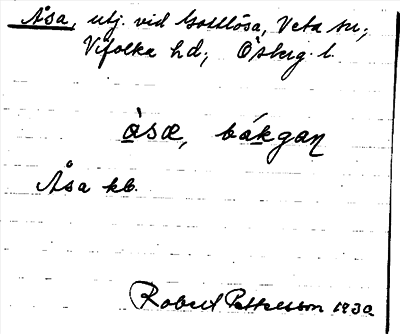 Åsa, utj. vid Gottlösa, Veta sn;
Vifolka hd; Österg. l.
åsæ, bákgan
Åsa kb.
Robert Pettersson 1930